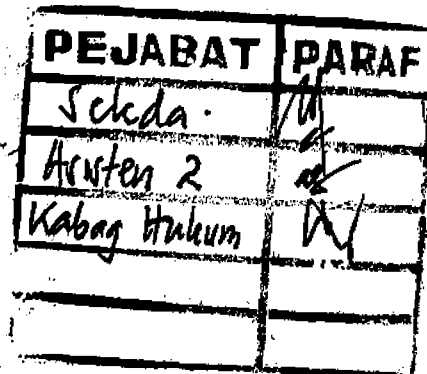 PEJABAT PARAF
Sekda.
Asisten 2
Kabag Hukum